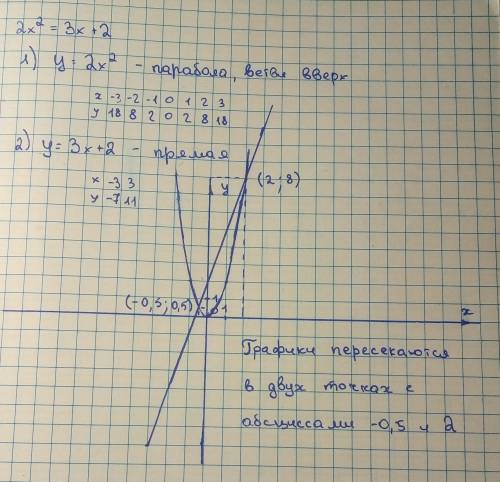 2x² = 3x + 2
1) y = 2x² - парабола, ветви вверх
x -3 -2 -1 0 1 2 3
y 18 8 2 0 2 8 18
2) y = 3x + 2 - прямая
x -3 3
y -7 11
y
(2; 8)
(-0,5; 0,5)
1
0 1
x
Графики пересекаются
в двух точках с
абсциссами -0,5 и 2